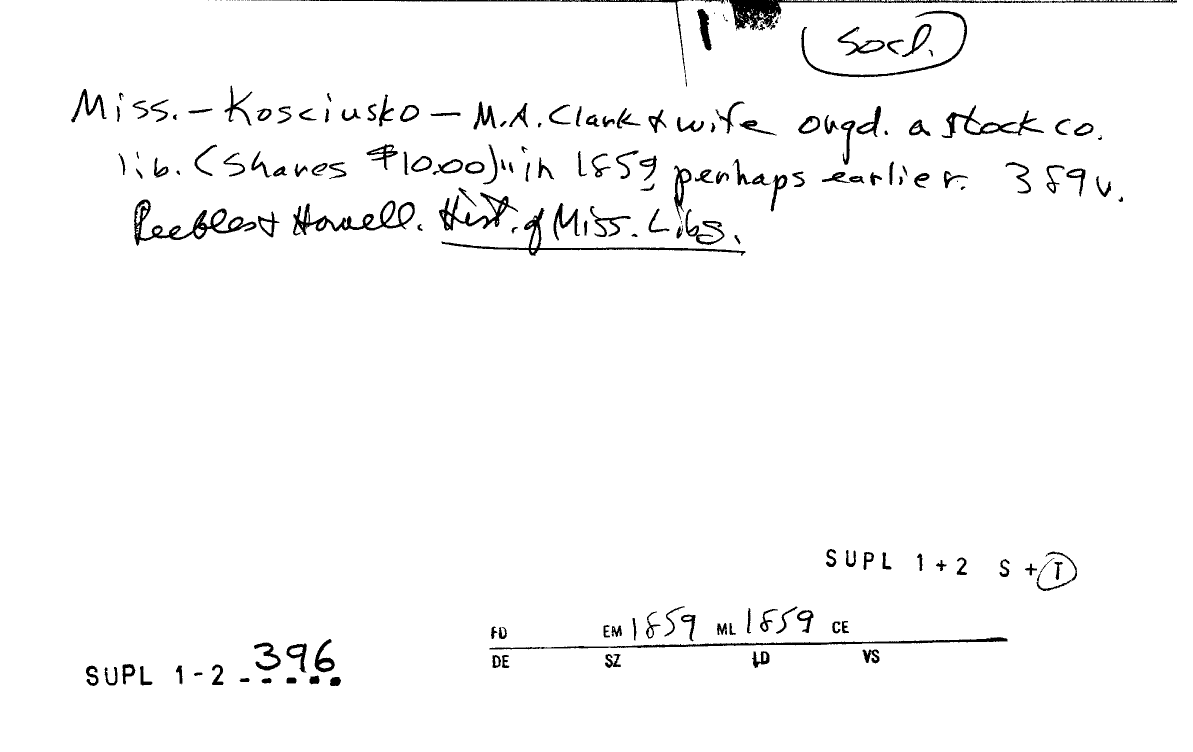 Socl.
Miss. - Kosciusko - M.A. Clark & wife orgd. a stock co.
lib. (Shares $10.00)" in 1859 perhaps earlier. 389 v.
Peebles & Howell. Hist. of Miss. Libs.
SUPL 1+2 S + T
FD EM 1859 ML 1859 CE
DE SZ LD VS
SUPL 1-2 396